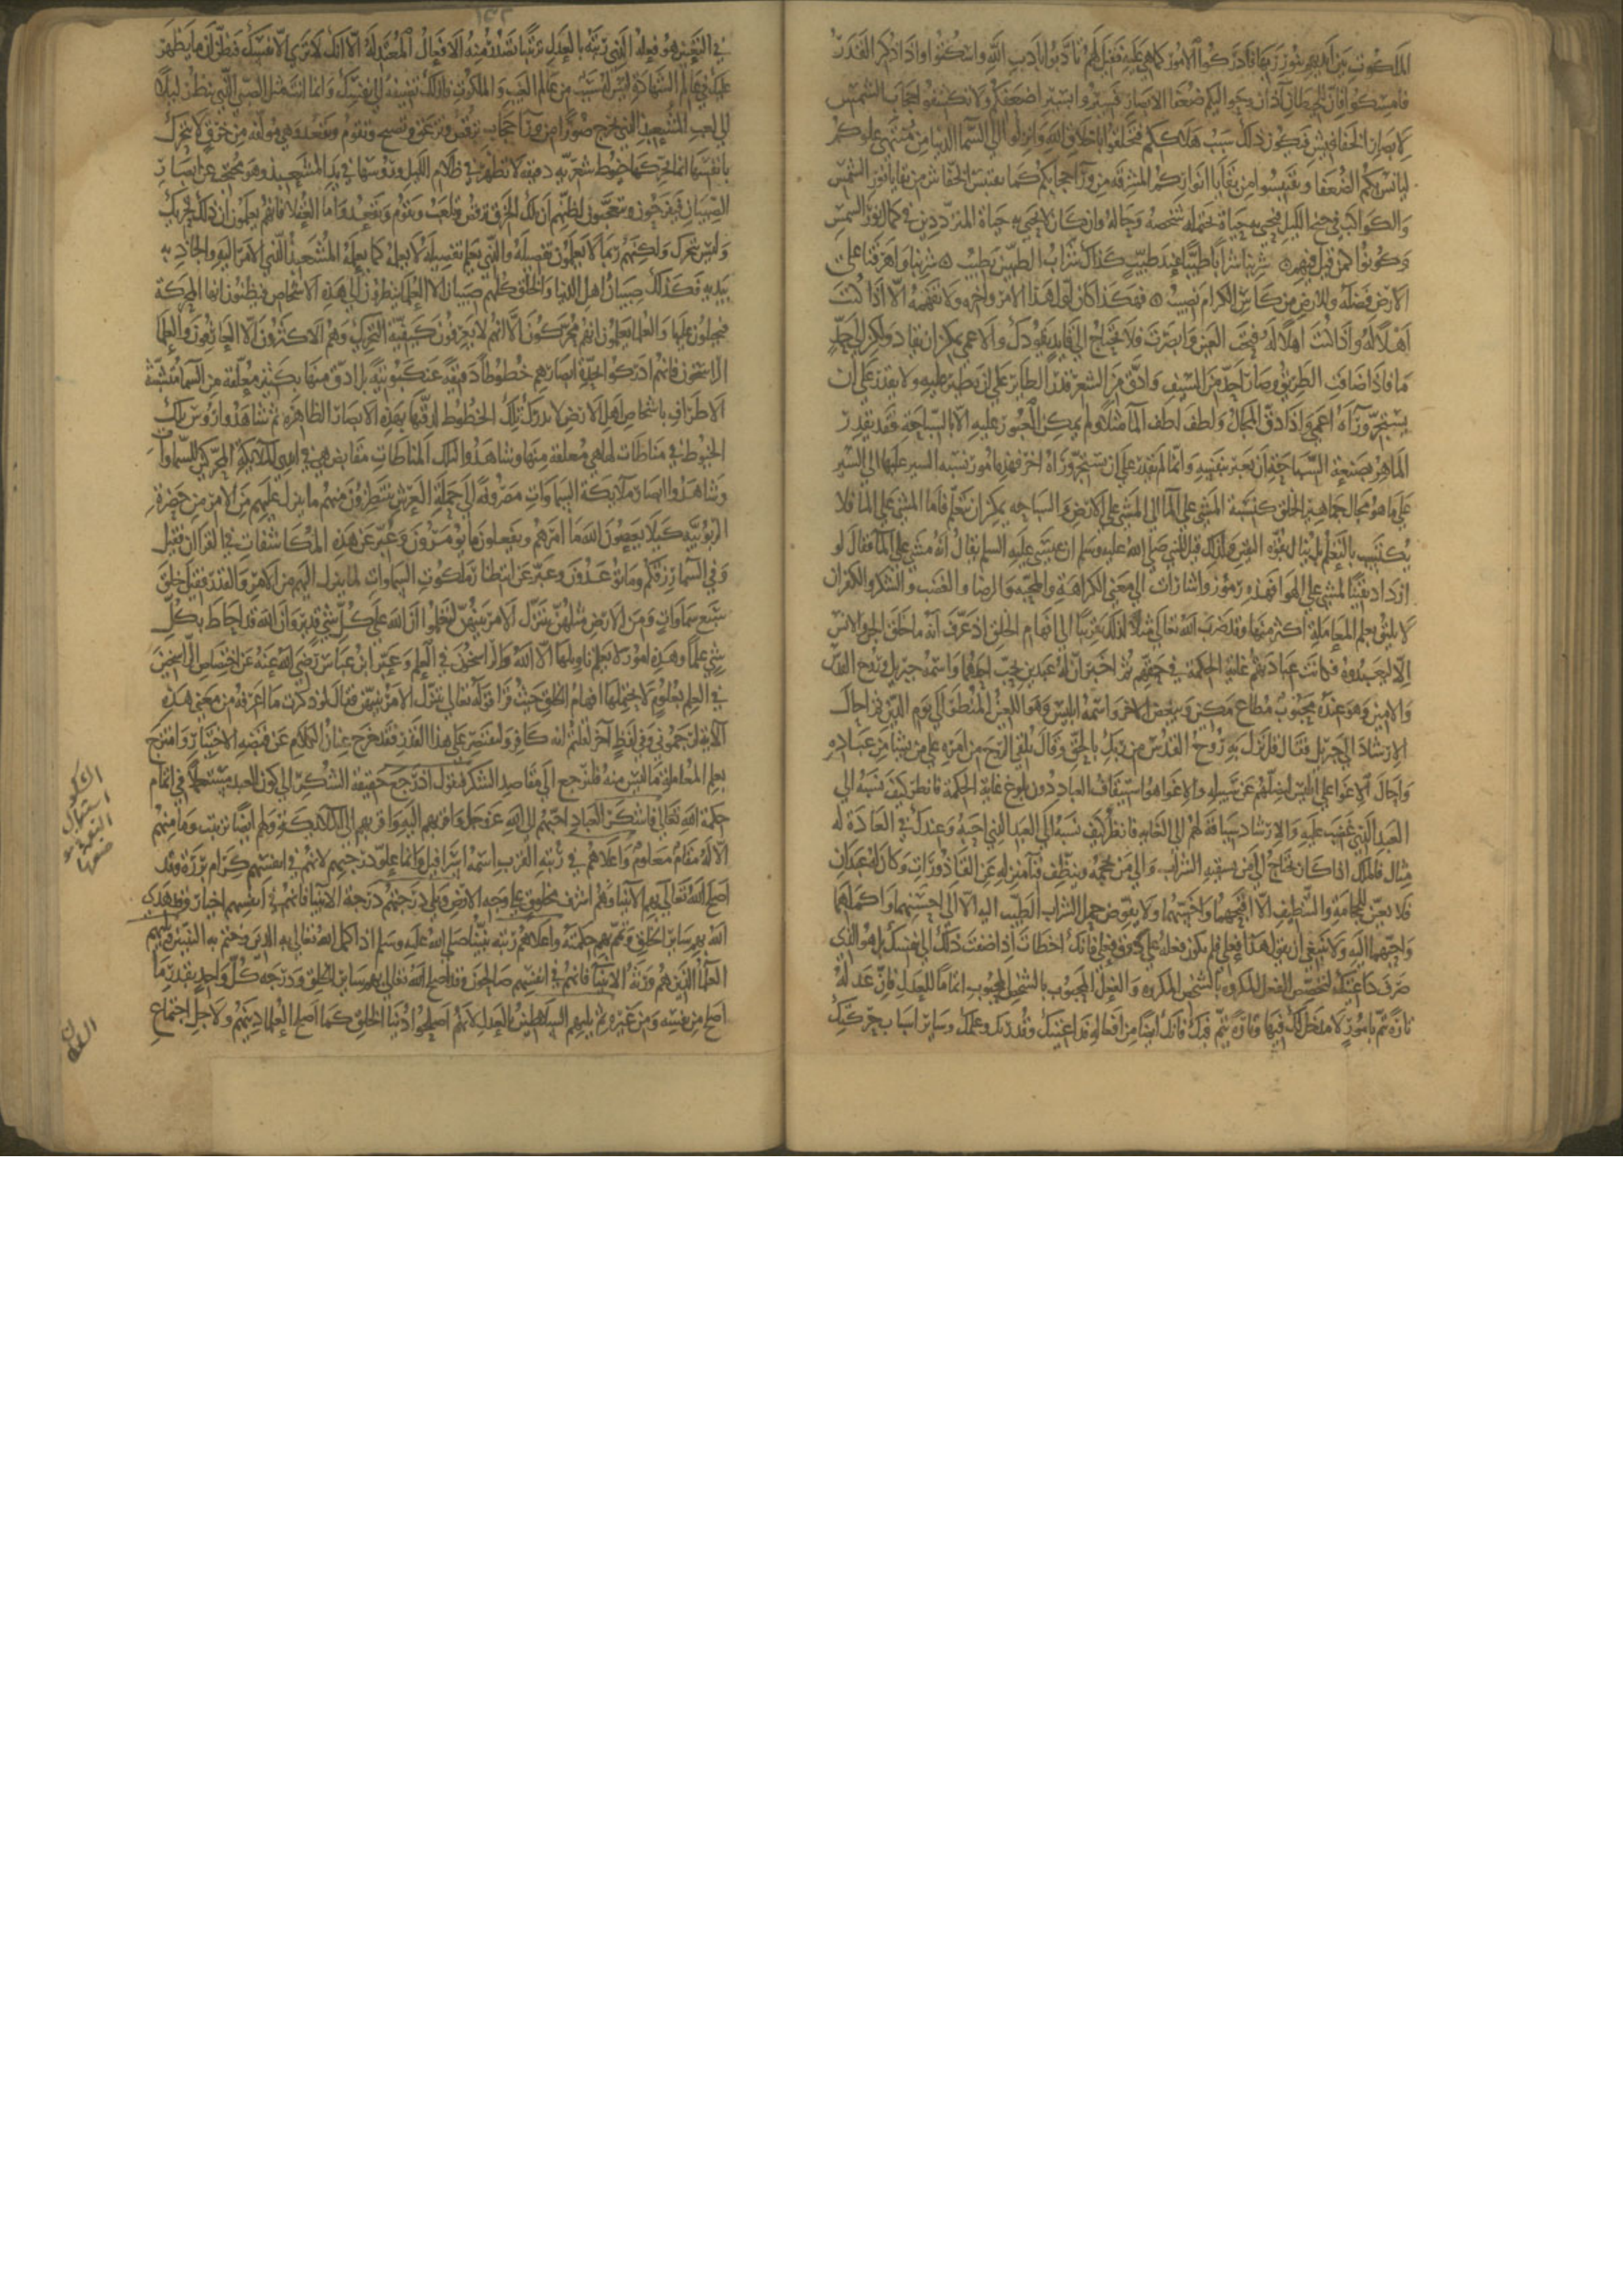 الملكوت من أيديهم بنور ربها فادركوا الامور كما هي عليه فقيل لهم تأدبوا بأدب الله واسكتوا واذا ذكر القدر
فامسكوا فان للحيطان آذان وحواليكم ضعفا الابصار فسيروا بسير اضعفكم ولا تكشفوا حجاب الشمس
لابصار الخفافيش فيكون ذلك سبب هلاكهم فتخلقوا باخلاق الله وانزلوا الى السما الدنيا من منتهى علوكم
ليأنس بكم الضعفا ويقتبسوا من بقايا انواركم المشرقة من ورآ حجابكم كما يقتبس الخفاش من بقايا نور الشمس
والكواكب في جنح الليل فيحيى به حياة يحتملها شخصه وحاله وان كان لا يحيى به حياة المترددين في كمال نور الشمس
وكونوا كمن قيل فيهم شربنا شرابا طيبا عند طيب كذاك شراب الطيبين يطيب شربنا واهرقنا على
الارض فضله وللارض من كاس الكرام نصيب فهكذا كان اول هذا الامر واخره ولا تفهمه الا اذا كنت
اهلا له واذا كنت اهلا له فتحت العين وابصرت فلا تحتاج الى قايد يقودك والاعمى يمكن ان يقاد ولكن الى حد
ما فاذا ضاقت الطريق وصار احد من السيف وادق من الشعر قدر الطاير على ان يطير عليه ولا يقدر على ان
يستجر ورآه اعمى واذا دق المجال ولطف لطف المآ مثلا ولم يمكن العبور عليه الا بالسباحة فقد يقدر
الماهر بصنعة السباحة ان يعبر بنفسه وانما لم يقدر على ان يستجر ورآه اخر فهذه امور نسبة السير عليها الى السير
على ما هو مجال جماهير الخلق كنسبة المشي على المآ الى المشي على الارض والسباحة يمكن ان تتعلم فاما المشي على المآ فلا
يكتسب بالتعلم بل ينال بقوة اليقين ولذلك قيل للنبي صلى الله عليه وسلم ان عيسى عليه السلم يقال انه مشى على المآ فقال لو
ازداد يقينا لمشى على الهوا فهذه رموز واشارات الى معنى الكراهة والمحبة والرضا والغضب والشكر والكفران
لا يليق بعلم المعاملة اكثر منها وقد ضرب الله تعالى مثلا لذلك تقريبا الى افهام الخلق اذ عرف انه ما خلق الجن والانس
الا ليعبدوه فكانت عبادتهم غاية الحكمة في حقهم ثم اخبر ان له عبدين يحب احدهما واسمه جبريل وروح القدس
والامين وهو عنده محبوب مطاع مكين ويبغض الاخر واسمه ابليس وهو اللعين المنظر الى يوم الدين ثم احال
الارشاد الى جبريل فقال قل نزله روح القدس من ربك بالحق وقال يلقي الروح من امره على من يشا من عباده
واحال الاغوا على ابليس ليضلهم عن سبيله والاغوا هو استيقاف العباد دون بلوغ غاية الحكمة فانظر كيف نسبه الى
العبد الذي غضب عليه والارشاد سياقة لهم الى الغاية فانظر كيف نسبه الى العبد الذي احبه وعندك في العادة له
مثال فالملك اذا كان محتاجا الى من يسقيه الشراب والى من يحجمه وينظف فنآ منزله عن القاذورات وكان له عبدان
فلا يعين للحجامة والتنظيف الا اقبحهما واخسهما ولا يفوض حمل الشراب الطيب اليه الا الى احسنهما واكملهما
واحبهما اليه ولا ينبغي ان يقول هذا فعلي فلم يكون فعله على ذوق فعلي فانك اخطات اذا اضفت ذلك الى نفسك بل هو الذي
صرف داعيتك لتخصيص الفعل المكروه بالشخص المكروه والفعل المحبوب بالشخص المحبوب اتماما للعدل فان عدله
تارة يتم بامور لا مدخل لك فيها وتارة يتم فيك فانك ايضا من افعاله فداعيتك وقدرتك وعلمك وساير اسباب حركتك
في التعيين هو فعله الذي رتبه بالعدل ترتيبا تصدر منه الافعال المعتدلة الا انك لا ترى الا نفسك فتظن ان ما يظهر
عليك في عالم الشهادة ليس له سبب من عالم الغيب والملكوت فلذلك تضيفه الى نفسك وانما انت مثل الصبي الذي ينظر ليلا
الى لعب المشعبذ الذي يخرج صورا من ورآ حجاب ترقص وتزعق وتصيح وتقوم وتقعد وهي مولفة من خرق لا تتحرك
بانفسها انما تحركها خيوط شعرية دقيقة لا تظهر في ظلام الليل ورؤسها في يد المشعبذ وهو محتجب عن ابصار
الصبيان فيفرحون ويتعجبون لظنهم ان تلك الخرق ترقص وتلعب وتقوم وتقعد واما العقلا فانهم يعلمون ان ذلك تحريك
وليس بتحرك ولكنهم ربما لا يعلمون تفصيله والذي يعلم تفصيله لا يعلمه كما يعلمه المشعبذ الذي الامر اليه والجاذبة
بيديه فكذلك صبيان اهل الدنيا والخلق كلهم صبيان الا العلما ينظرون الى هذه الاشخاص فيظنون انها المتحركة
فيحيلون عليها والعلما يعلمون انهم محركون الا انهم لا يعرفون كيفية التحريك وهم الاكثرون الا العارفون والعلما
الراسخون فانهم ادركوا بحدة ابصارهم خيوطا دقيقة عنكبوتية بل ادق منها بكثير معلقة من السما متشبثة
الاطراف باشخاص اهل الارض لا تدرك تلك الخيوط لدقتها بهذه الابصار الظاهرة ثم شاهدوا رؤس تلك
الخيوط في مناطات لها هي معلقة منها وشاهدوا لتلك المناطات مقابض هي في ايدي الملايكة المحركين للسماوات
وشاهدوا ابصار ملايكة السماوات مصروفة الى حملة العرش ينتظرون منهم ما ينزل عليهم من الامر من حضرة
الربوبية كيلا يعصون الله ما امرهم ويفعلون ما يؤمرون وعبر عن هذه المكاشفات في القرآن فقيل
وفي السما رزقكم وما توعدون وعبر عن انتظار ملكوت السماوات لما ينزل اليهم من الامر والقدر فقيل خلق
سبع سماوات ومن الارض مثلهن يتنزل الامر بينهن لتعلموا ان الله على كل شي قدير وان الله قد احاط بكل
شي علما وهذه امور لا يعلم تاويلها الا الله والراسخون في العلم وعبر ابن عباس رضي الله عنه عن اختصاص الراسخين
في العلم بعلوم لا يحتملها افهام الخلق حيث قرا قوله تعالى يتنزل الامر بينهن فقال لو ذكرت ما اعرفه من معنى هذه
الآية لرجمتموني وفي لفظ آخر لقلتم انه كافر ولنقتصر على هذا القدر فقد خرج عنان الكلام عن قبضة الاختيار وامتزج
بعلم المعاملة ما ليس منه فلنرجع الى مقاصد الشكر فنقول اذا رجع حقيقة الشكر الى كون العبد مستعملا في اتمام
حكمة الله تعالى فاشكر العباد احبهم الى الله عز وجل واقربهم اليه واقربهم الى الله الملايكة ولهم ايضا ترتيب وما منهم
الا له مقام معلوم واعلاهم في رتبة القرب اسمه اسرافيل وانما علو درجتهم لانهم في انفسهم كرام بررة وقد
اصلح الله تعالى بهم الانبيا وهم اشرف مخلوق على وجه الارض ويلي درجتهم درجة الانبيا فانهم في انفسهم اخيار وقد هدى
الله بهم ساير الخلق وتمم بهم حكمته واعلاهم رتبة نبينا صلى الله عليه وسلم اذ اكمل الله تعالى به الدين وختم به النبيين ويليهم
العلمآ الذين هم ورثة الانبيآ فانهم في انفسهم صالحون وقد اصلح الله تعالى بهم ساير الخلق ودرجة كل واحد بقدر ما
اصلح من نفسه ومن غيره ثم يليهم السلاطين بالعدل لانهم اصلحوا دنيا الخلق كما اصلح العلما دينهم ولاجل اجتماع